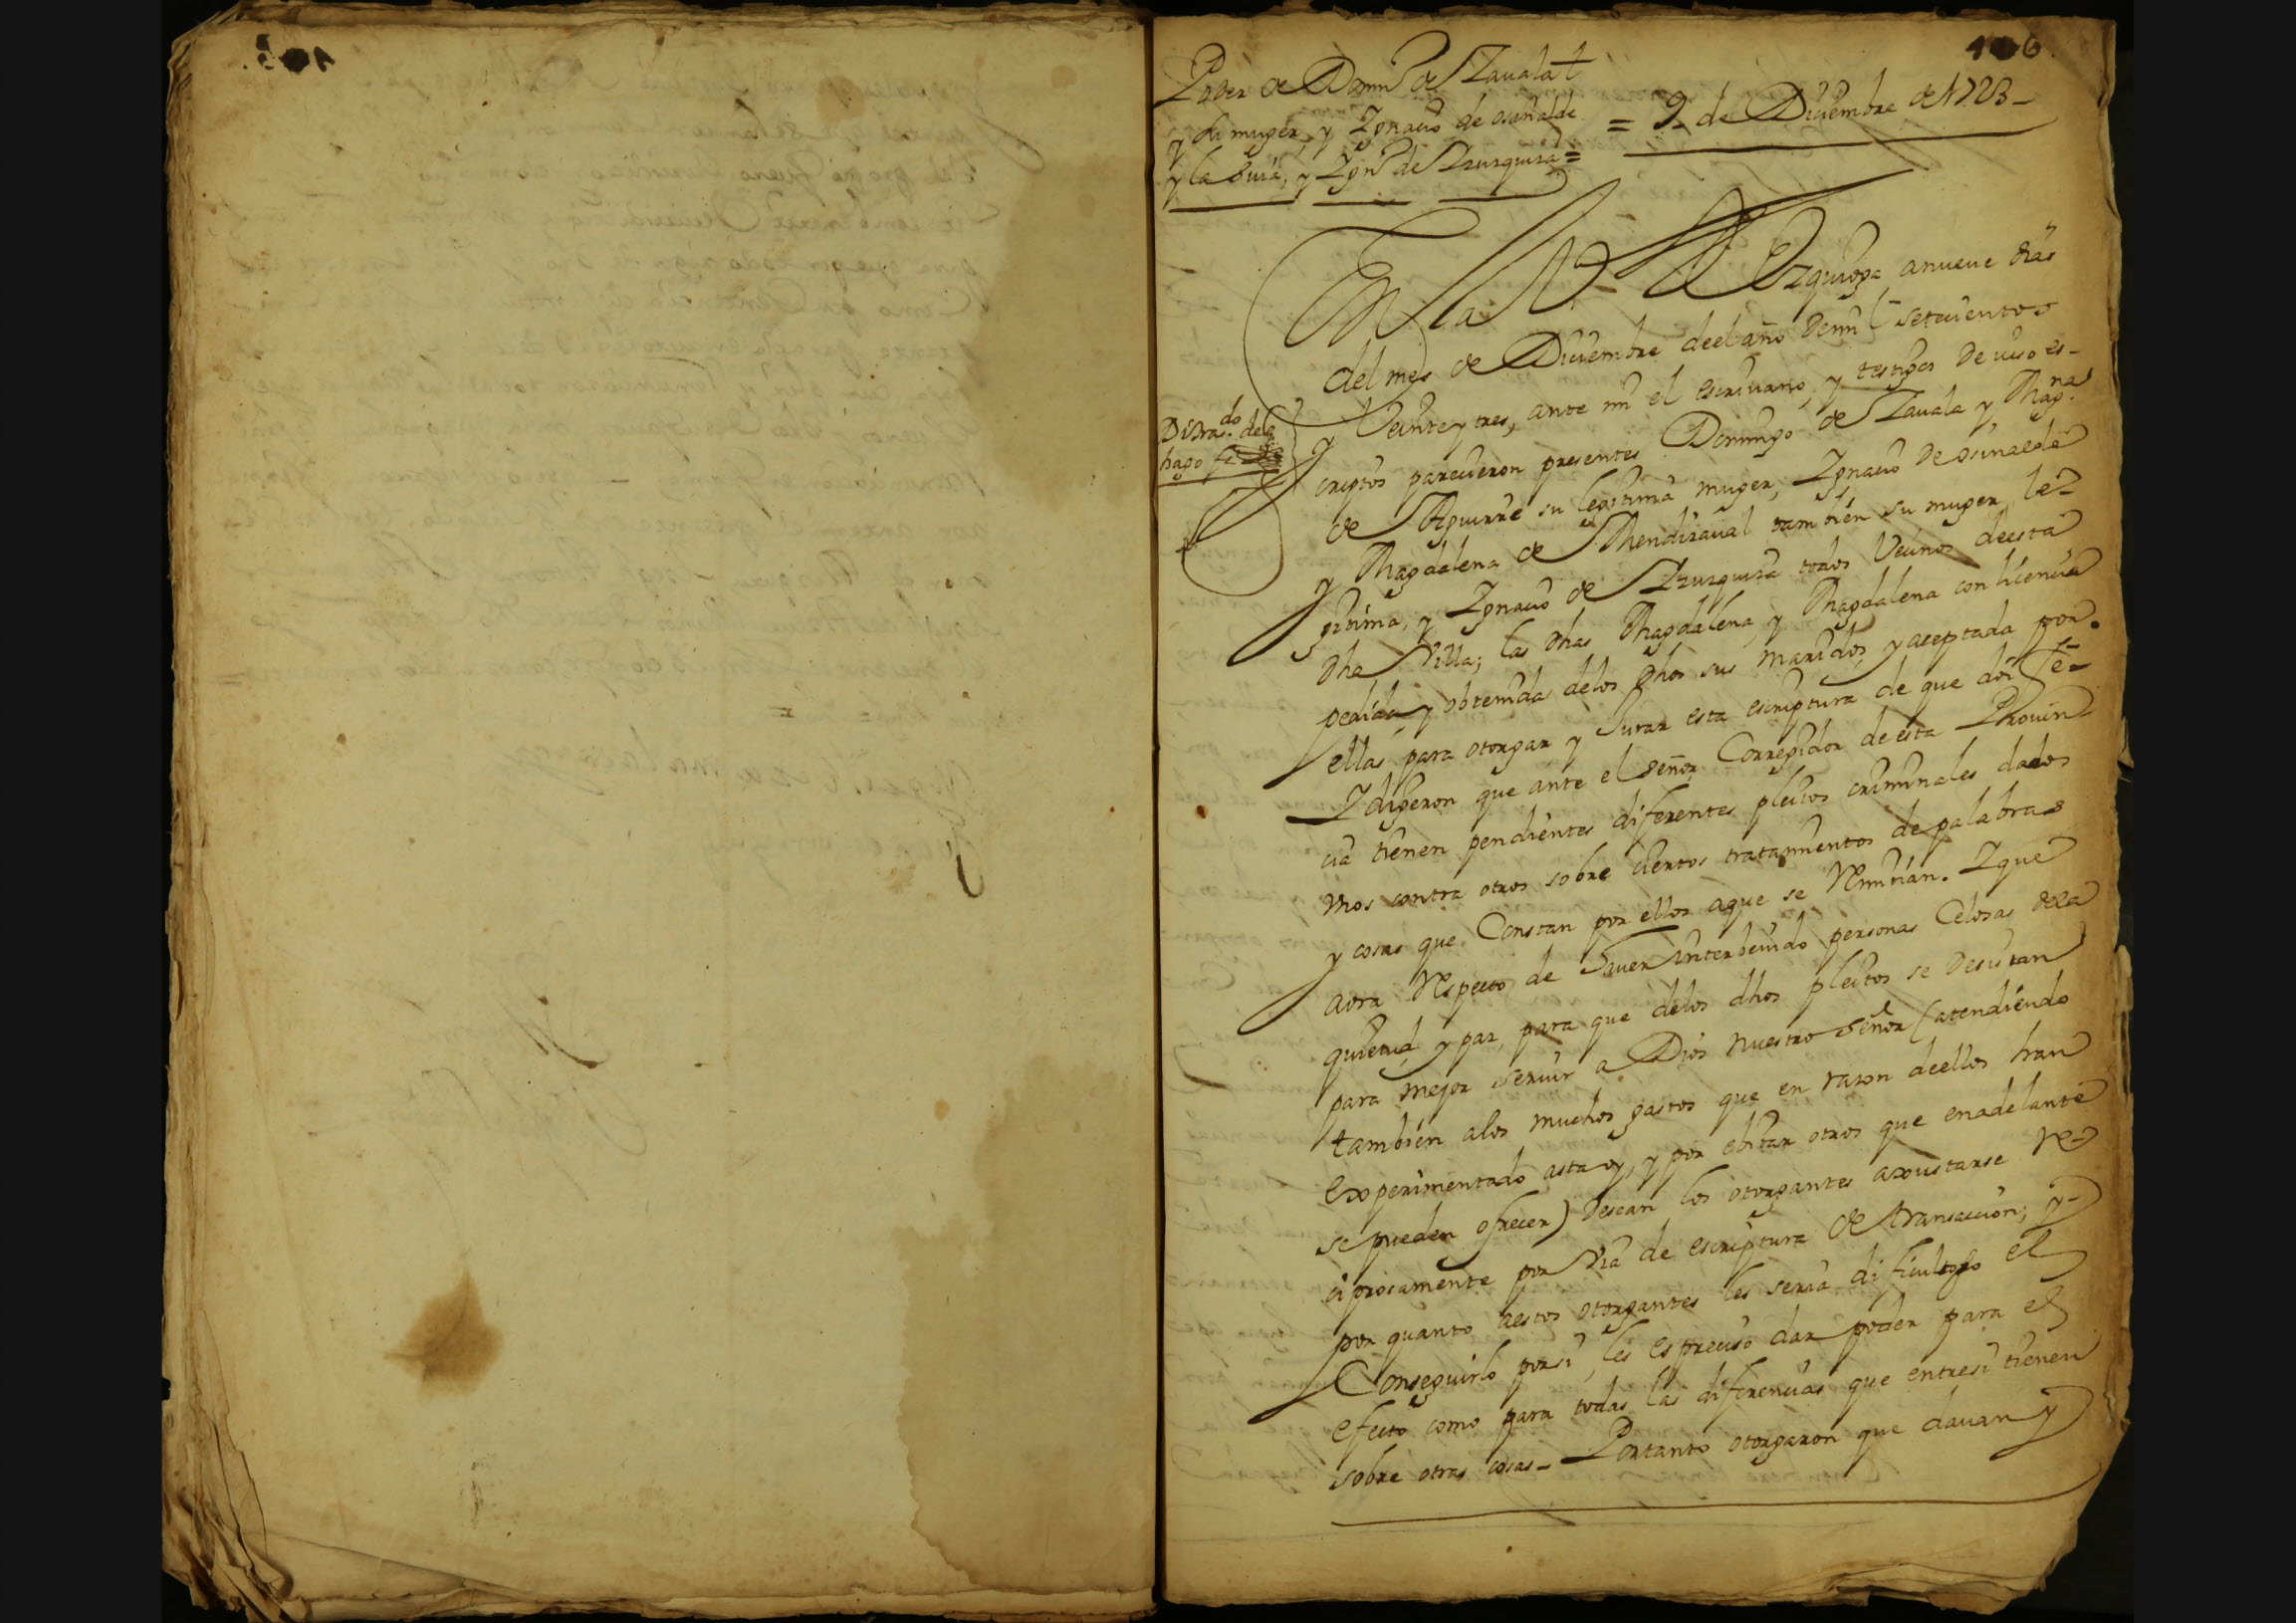 106.
Poder de Domin.º de Zauala
y su muger, y Ignacio de osinalde
y la suia, y Ign.º de Izurquiza =
= 9 de Diziembre de 1723 –
En la V.ª de Azquoga, anueue dias
del mes de Diziembre deel año demil setecientos
y Veinte y tres, ante mi el escriuano, y testigos de iuso es-
Disfra.do dela
hago fe
criptos parecieron presentes Domingo de Zauala y Mag.na
de Aguirre su legitima muger, Ignacio de osinalde
y Magdalena de Mendizaual tambien su muger le-
gitima, y Ignacio de Izurquiza todos Vecinos deesta
dha Villa; las dhas Magdalena, y Magdalena con licencia
pedida, y obtenida delos dhos sus maridos, y aceptada por
ellas, para otorgar y Jurar esta escriptura de que doi fe –
I digeron que ante el señor Corregidor de esta Prouin-
cia tienen pendientes diferentes pleitos criminales dados
vnos contra otros sobre ciertos tratamientos de palabras
y cosas que Constan por ellos aque se Remitian. I que
aora Respecto de hauer interbenido personas Celosas dela
quietud, y paz, para que delos dhos pleitos se desistan
para mejor seruir a Dios nuestro señor (atendiendo
tambien alos muchos gastos que en razon deellos han
experimentado asta oy, y por ebitar otros que enadelante
se pueden ofrecer) desean los otorgantes axustarse Re-
ciprocamente por via de escriptura de transaccion; y-
por quanto aestos otorgantes les seria dificultoso el
Conseguirlo porsi, les es preciso dar poder para el
efecto como para todas las diferencias que entresi tienen
sobre otras cosas – Portanto otorgaron que dauan y